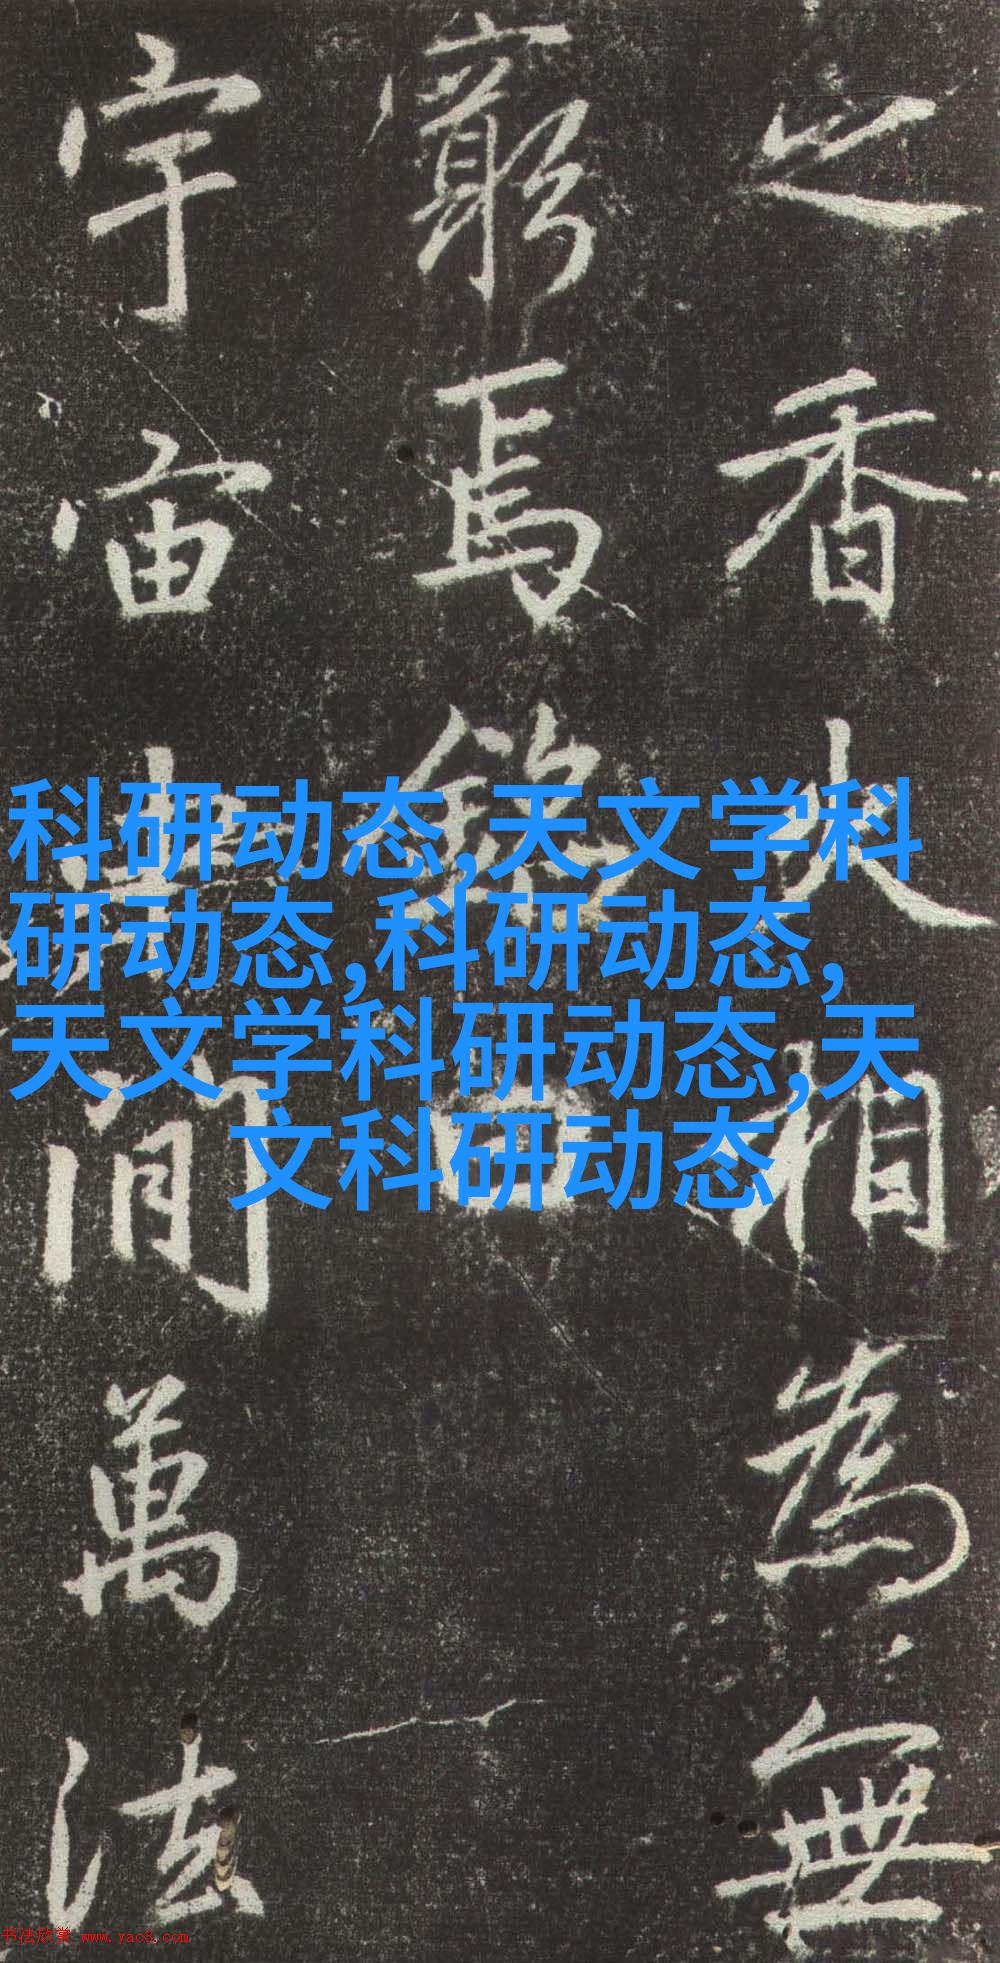 之香火相為無
窮焉銘曰
宇宙之間萬法
科研动态,天文学科
研动态,科研动态,
天文学科研动态,天
文科研动态
书法欣赏 www.yac8.com